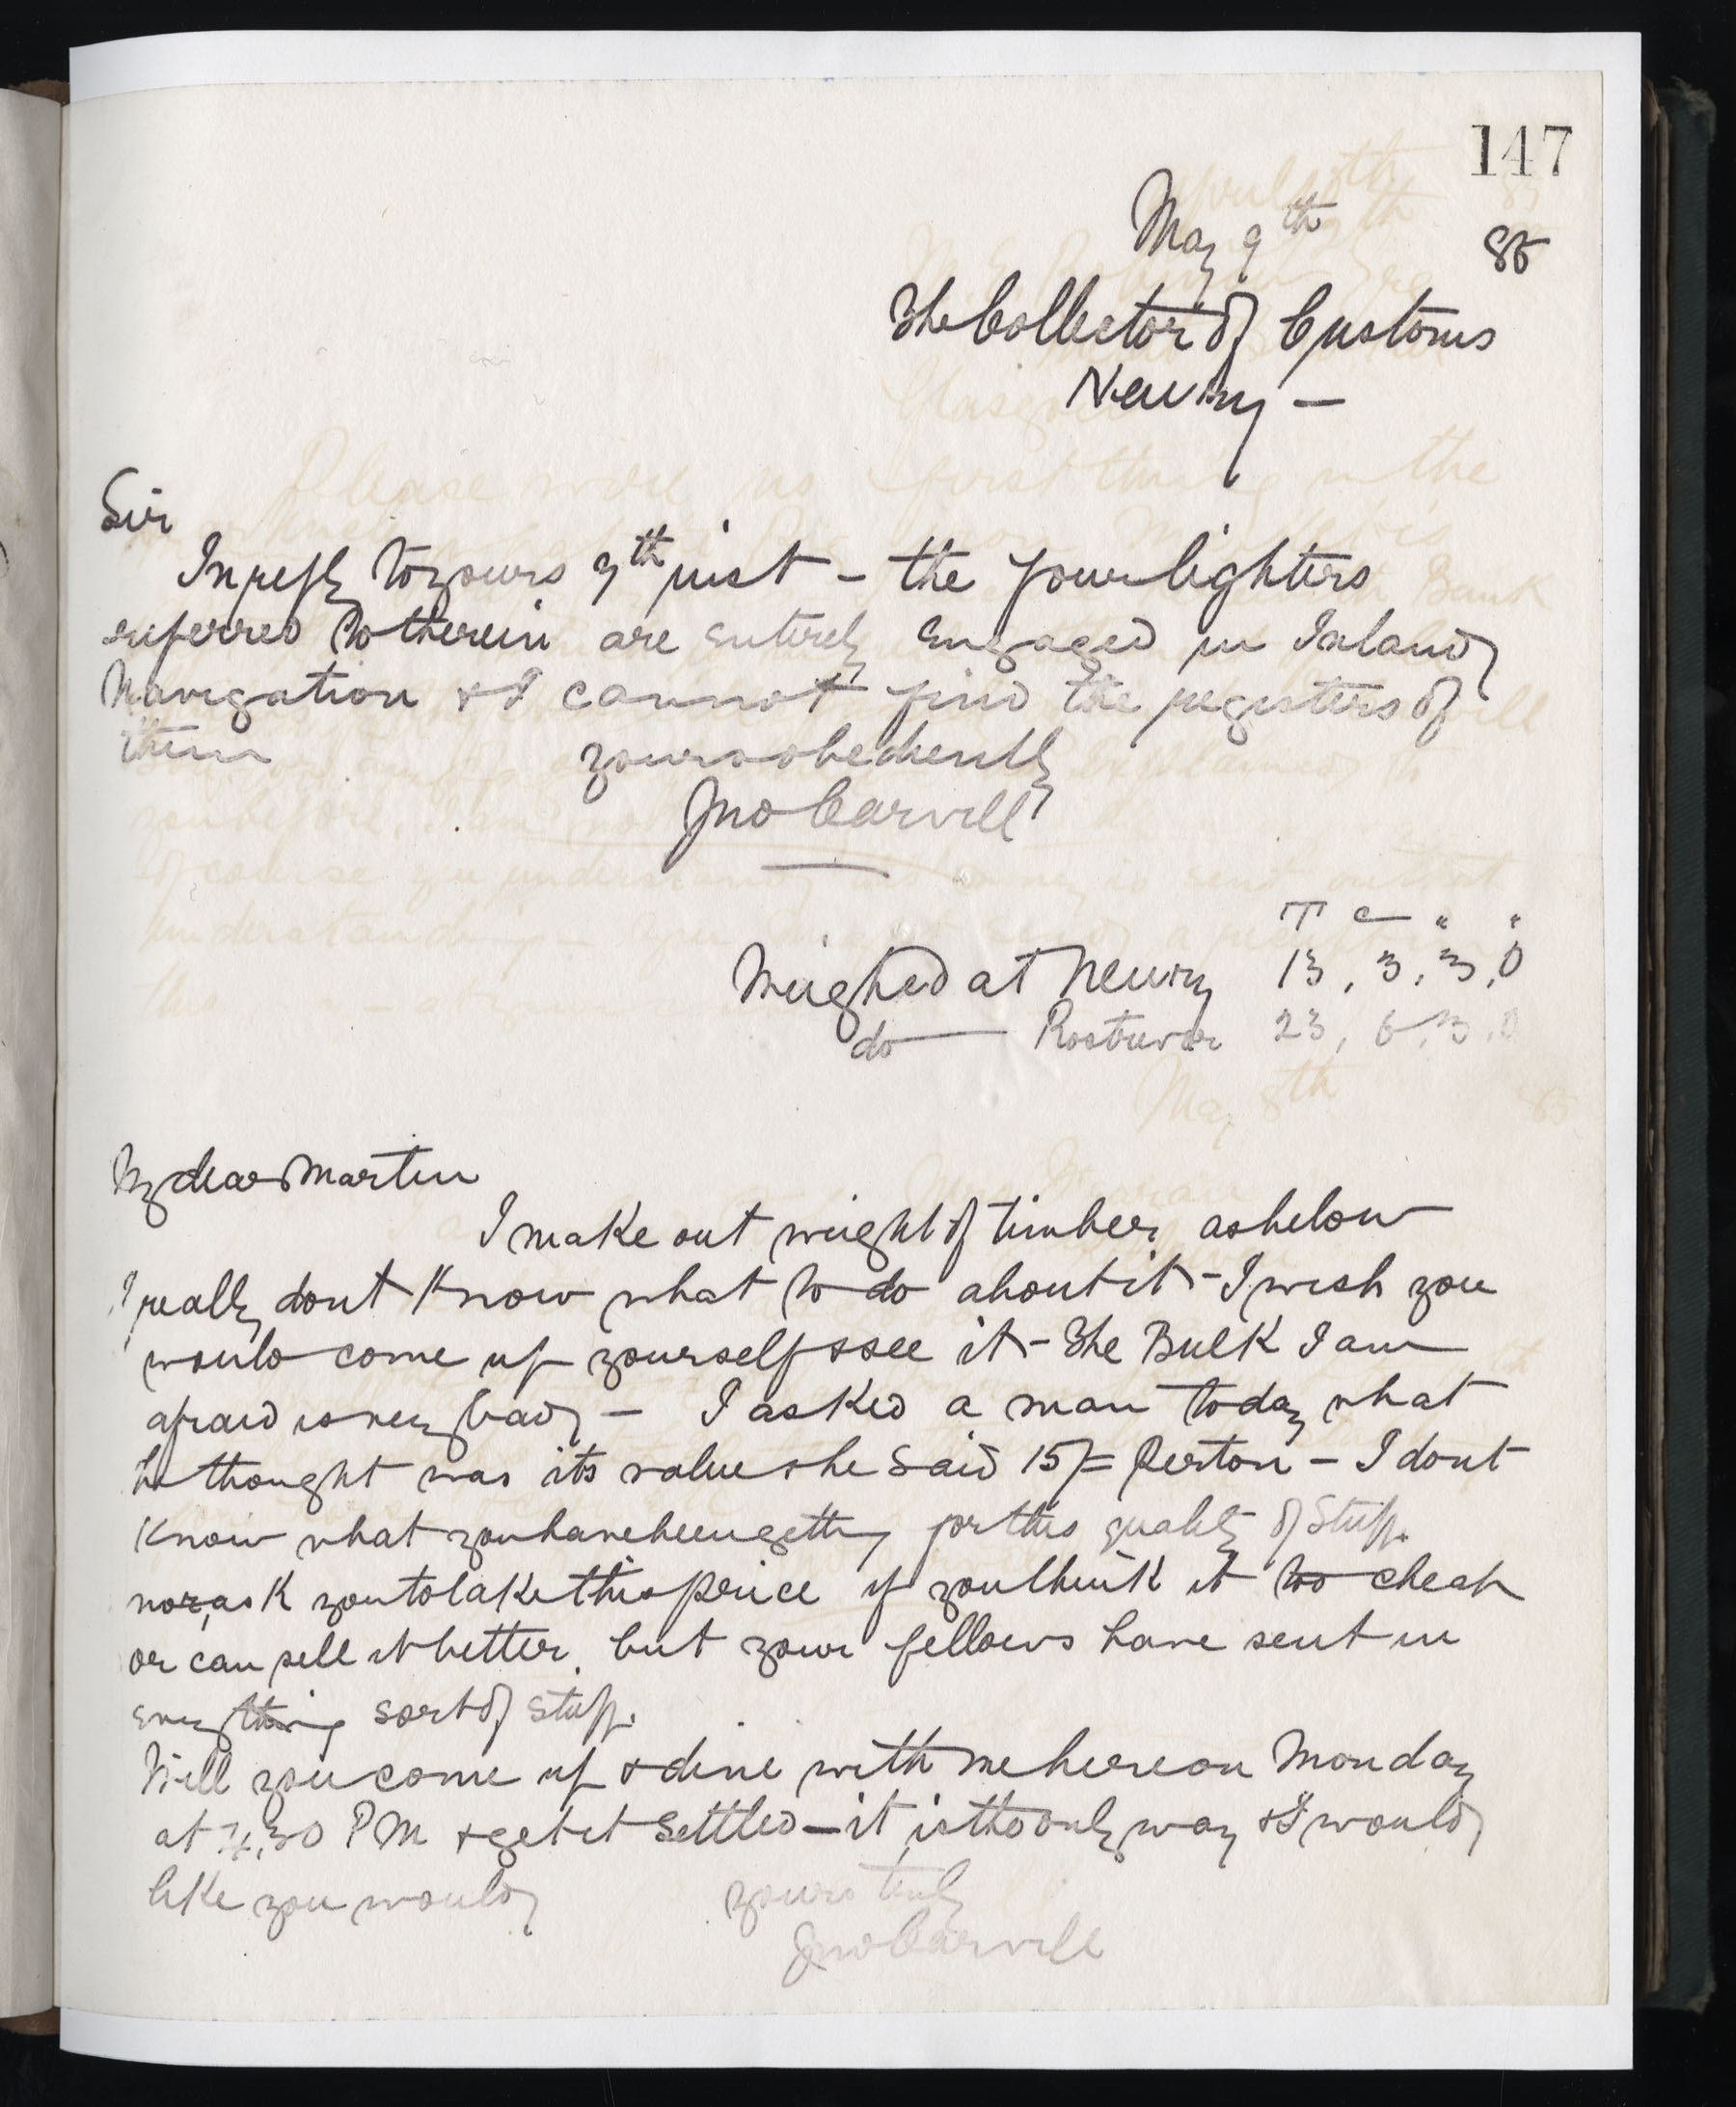 147
May 9th 85
The Collector of Customs
Newry —
Sir
In reply to yours 9th inst – the four lighters
referred to therein are entirely engaged in Inland
Navigation & I cannot find the registers of
them yours obediently
Jno Carvill
T c " "
Weighed at Newry 13, 3, 3, 0
do — Rostrevor 23, 6, 3, 0
My dear Martin
I make out weight of timber as below
I really dont know what to do about it – I wish you
would come up yourself & see it – The Bulk I am
afraid is very bad – I asked a man today what
he thought was its value & he said 15/= per ton – I dont
know what you have been getting for this quality of stuff.
nor ask you to take this price if you think it too cheap
or can sell it better. but your fellows have sent in
every thing sort of stuff.
Will you come up & dine with me here on Monday
at 4.30 PM & get it settled – it is the only way & I would
like you would yours truly
Jno Carvill